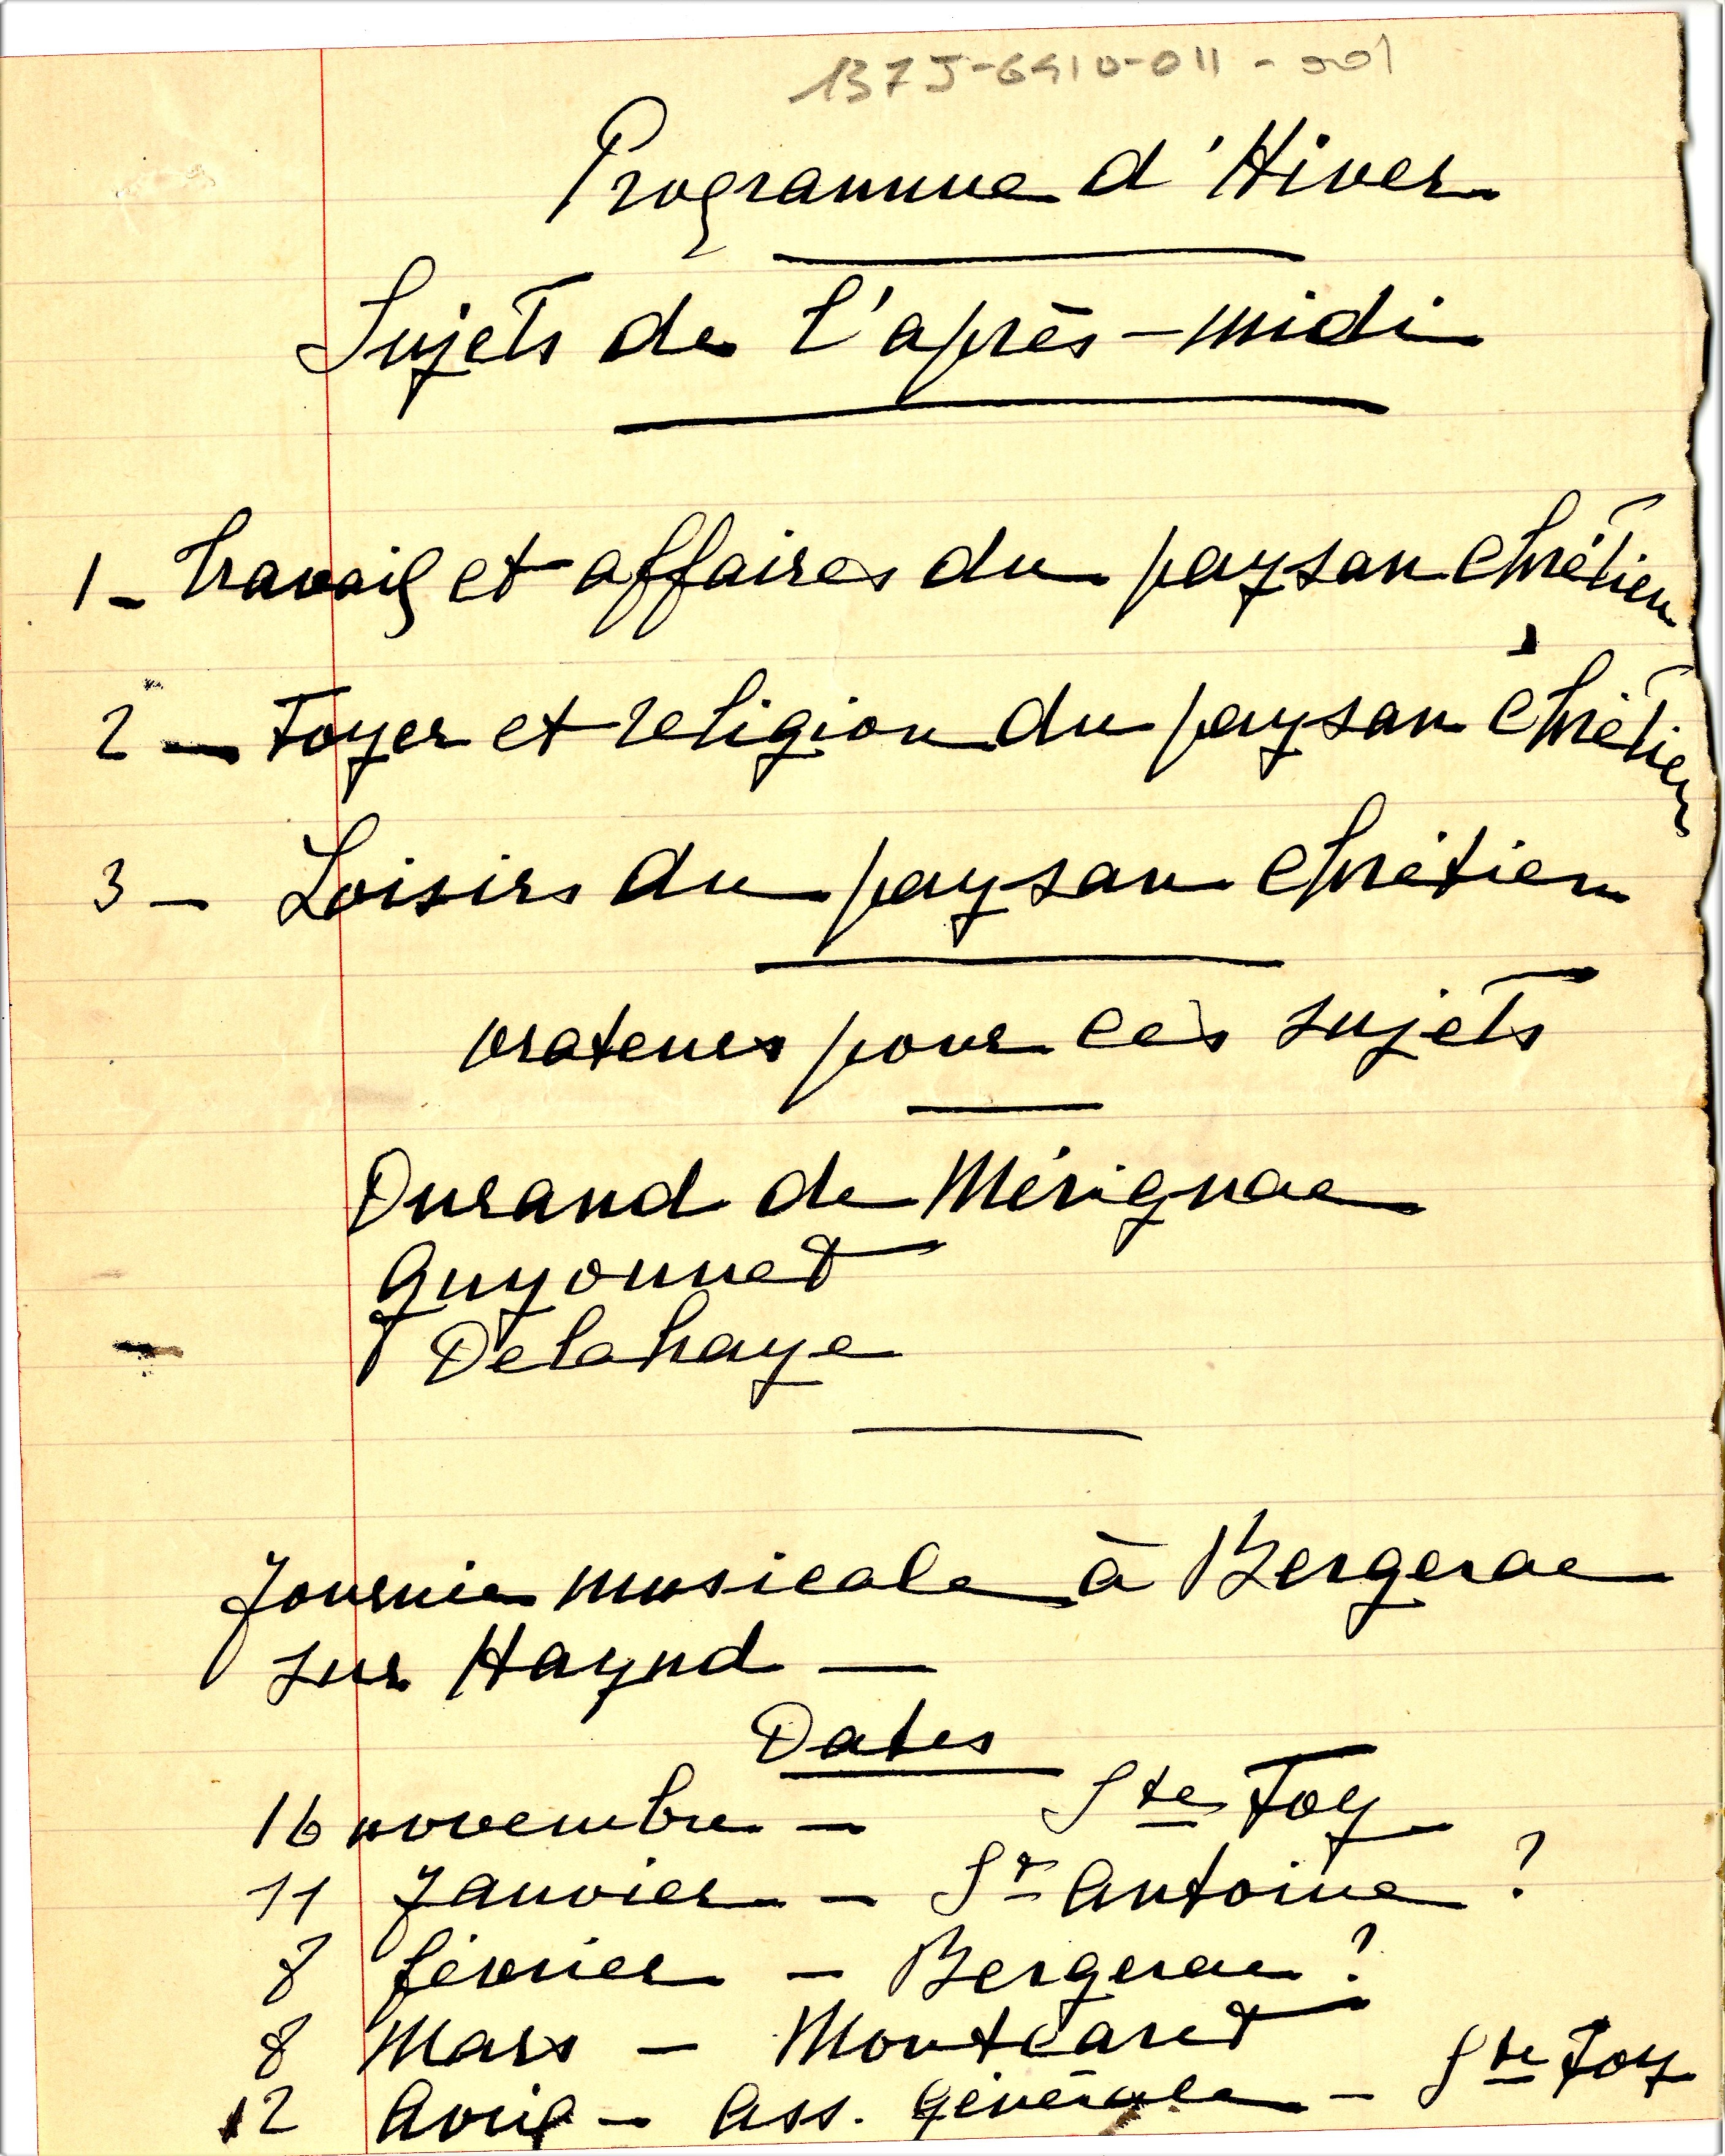 137 J-6410-011-001
Programme d'Hiver
Sujets de l'après-midi
1 - Travail et affaires du paysan chrétien
2 - Foyer et religion du paysan chrétien
3 - Loisirs du paysan chrétien
orateurs pour ces sujets
Durand de Mérignac
Guyonnet
Delahaye
Journée musicale à Bergerac
sur Haynd -
Dates
16 novembre - Ste Foy
11 Janvier - St Antoine ?
8 février - Bergerac ?
8 Mars - Montcaret
12 Avril - Ass. Générale - Ste Foy